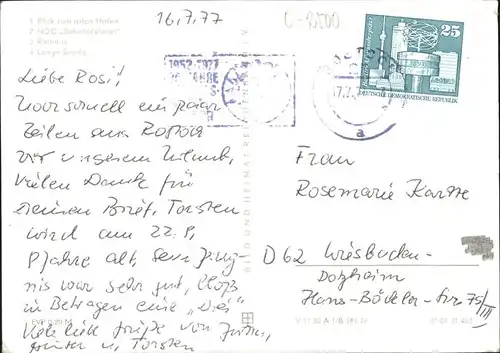 1 Blick zum alten Hafen
2 HOG „Bahnhofshotel“
3 Rathaus
4 Lange Straße
16.7.77
1952-1977
25
DEUTSCHE DEMOKRATISCHE REPUBLIK
17.7.
a
Liebe Rosi!
Noch schnell ein paar
Zeilen aus Rostock
vor unserem Urlaub,
Vielen Dank für
deinen Brief, Torsten
wird am 22.9.
9 Jahre alt, sein Zeug-
nis war sehr gut, bloß
in Betragen eine „Drei“
Viele liebe Grüße von
Günter u. Torsten
BILD UND HEIMAT REICHENBACH
Frau
Rosemarie
D 62 Wiesbaden-
Dotzheim
Hans-Böckler-Str. 75/III
EVP 0,20 M
V 11 50 A 1/B
01 01 21 403